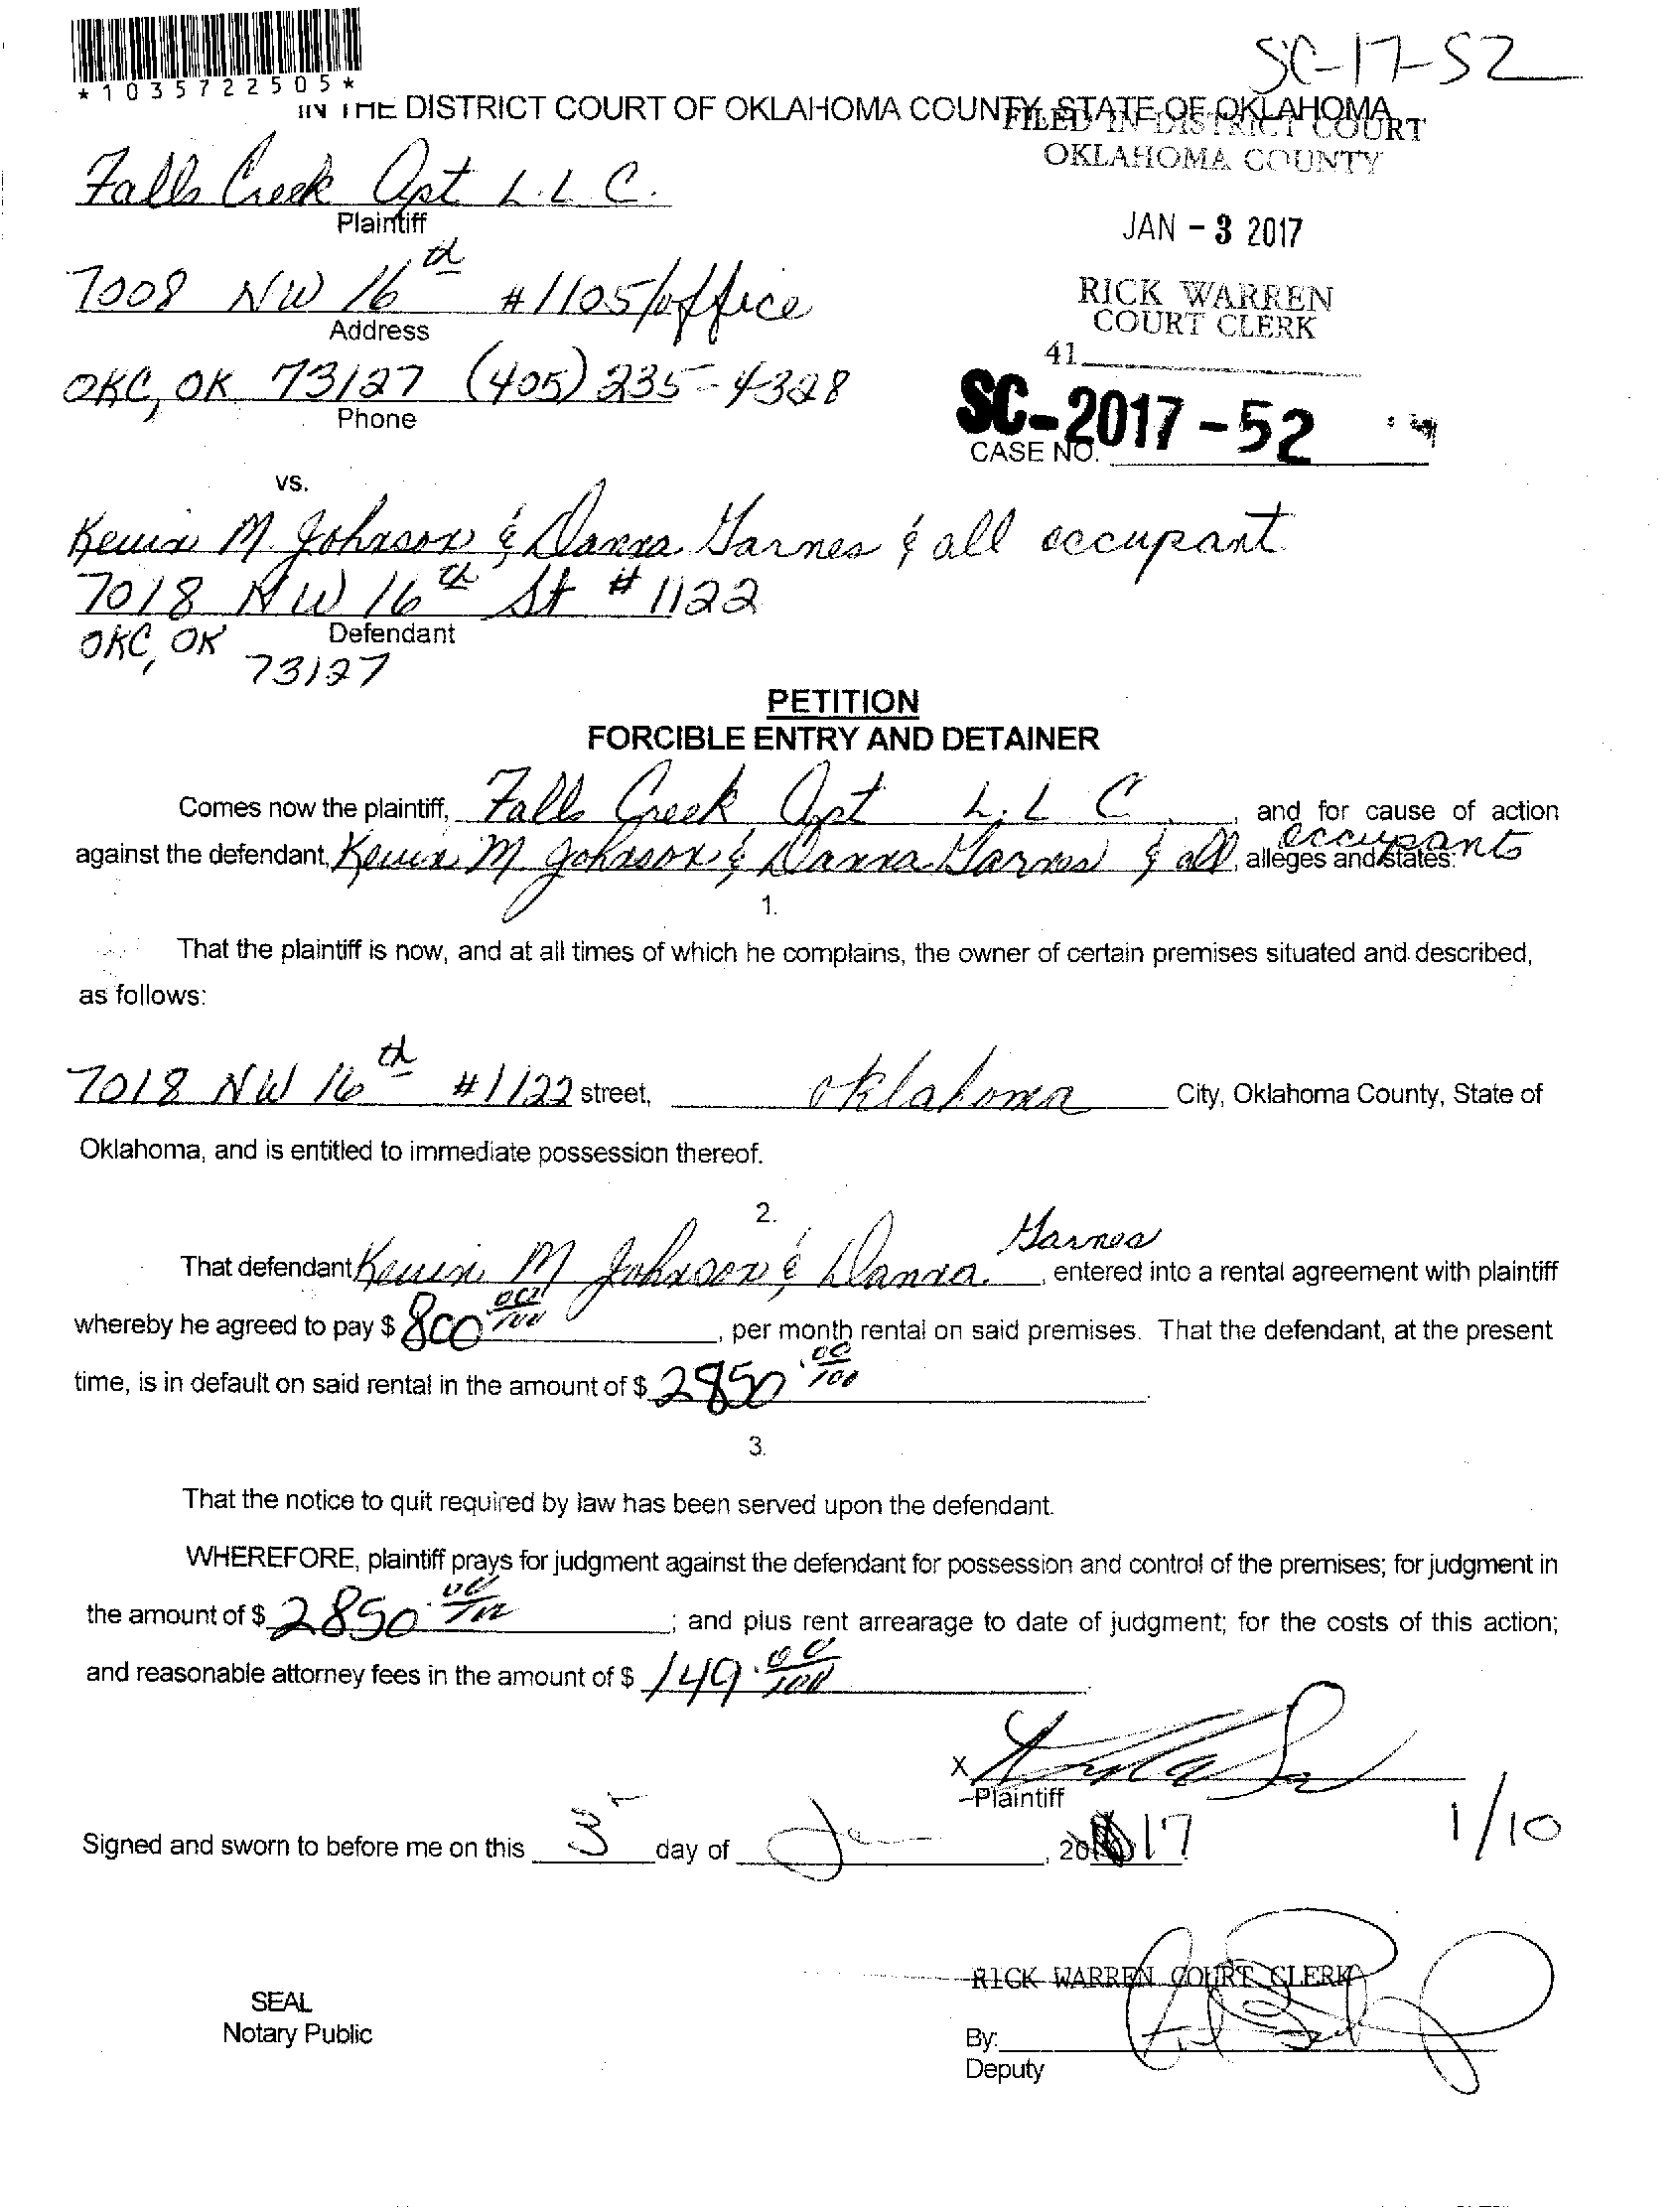 SC-17-52
*1035722505*
IN THE DISTRICT COURT OF OKLAHOMA COUNTY, STATE OF OKLAHOMA
FILED IN DISTRICT COURT
OKLAHOMA COUNTY
Falls Creek Apt L.L.C.
Plaintiff
JAN - 3 2017
7008 NW 16th #1105/office
Address
RICK WARREN
COURT CLERK
41
OKC, OK 73127 (405) 235-4328
Phone
SC-2017-52
CASE NO.
vs.
Kevin M. Johnson & Danna Garnes & all occupant
7018 NW 16th St #1122
Defendant
OKC, OK
73127
PETITION
FORCIBLE ENTRY AND DETAINER
Comes now the plaintiff, Falls Creek Apt L.L C, and for cause of action
against the defendant, Kevin M Johnson & Danna Garnes & all occupants, alleges and states:
1.
That the plaintiff is now, and at all times of which he complains, the owner of certain premises situated and described,
as follows:
7018 NW 16th #1122 street, Oklahoma City, Oklahoma County, State of
Oklahoma, and is entitled to immediate possession thereof.
2.
That defendant Kevin M Johnson & Danna Garnes, entered into a rental agreement with plaintiff
whereby he agreed to pay $ 800 00/100, per month rental on said premises. That the defendant, at the present
time, is in default on said rental in the amount of $ 2850.00/100.
3.
That the notice to quit required by law has been served upon the defendant.
WHEREFORE, plaintiff prays for judgment against the defendant for possession and control of the premises; for judgment in
the amount of $ 2850.00/100; and plus rent arrearage to date of judgment; for the costs of this action;
and reasonable attorney fees in the amount of $ 149.00/100.
X
Plaintiff
1/10
Signed and sworn to before me on this 3 day of Jan, 2017
RICK WARREN COURT CLERK
SEAL
Notary Public
By:
Deputy